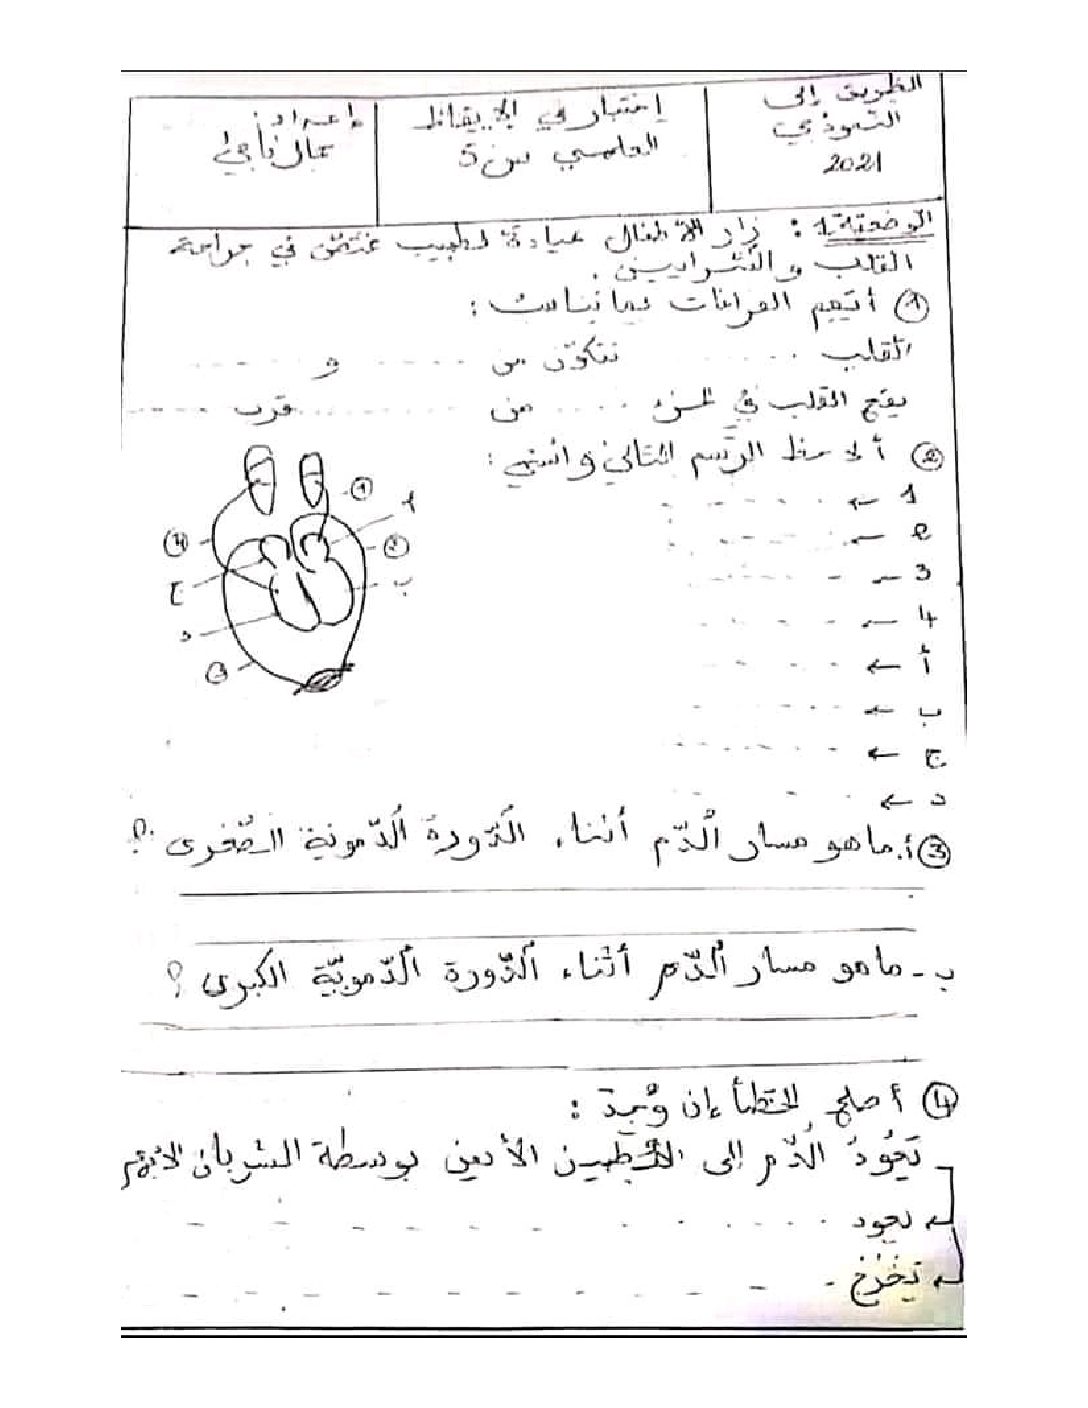 الطريق إلى
النموذجي
2021
إختبار في الإيقاظ
العلمي س 5
إعداد:
الوضعية 1: زار الأطفال عيادة طبيب مختص في جراحة
القلب والشرايين.
① أتمم الفراغات بما يناسب:
القلب ...... تتكوّن من ...... و ......
يقع القلب في الجزء ..... من .......... قرب ......
② ألاحظ الرّسم التالي و اسمي:
1 ←
2 ←
3 ←
4 ←
أ ←
ب ←
ج ←
د ←
①
أ
②
ب
④
ج
د
③
③ أ. ما هو مسار الدّم أثناء الدّورة الدّموية الصّغرى؟
ب - ما هو مسار الدّم أثناء الدّورة الدّمويّة الكبرى؟
④ أصلح الخطأ إن وُجد:
يَعُودُ الدّم إلى الأذين الأيمن بوسطة الشريان الأبهر
يعود ......
يَخْرُجُ ......